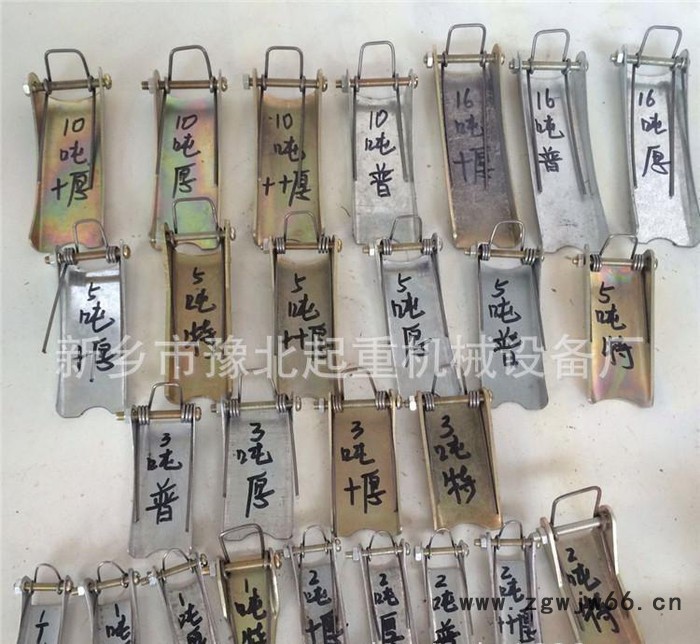 10吨+厚
10吨厚
10吨++厚
10吨普
16吨+厚
16吨普
16吨厚
5吨+厚
5吨特
5吨++厚
5吨厚
5吨普
5吨特
新乡市豫北起重机械设备厂
3吨普
3吨厚
3吨+厚
3吨特
1吨
1吨
1吨特
2吨+厚
2吨
2吨
2吨+
2吨
www.zgwjw66.com.cn